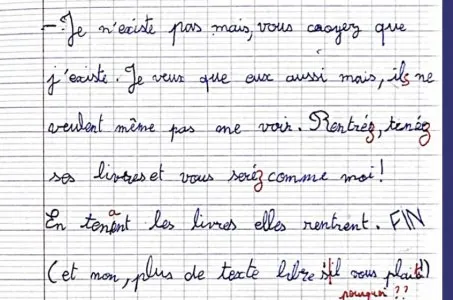 - Je n'existe pas mais, vous croyez que
j'existe. Je veux que eux aussi mais, ils ne
veulent même pas me voir. Rentréz, tenéz
ses livres et vous seréz comme moi !
En tenant les livres elles rentrent. FIN
(et non, plus de texte libre s'il vous plait)
pourquoi ??